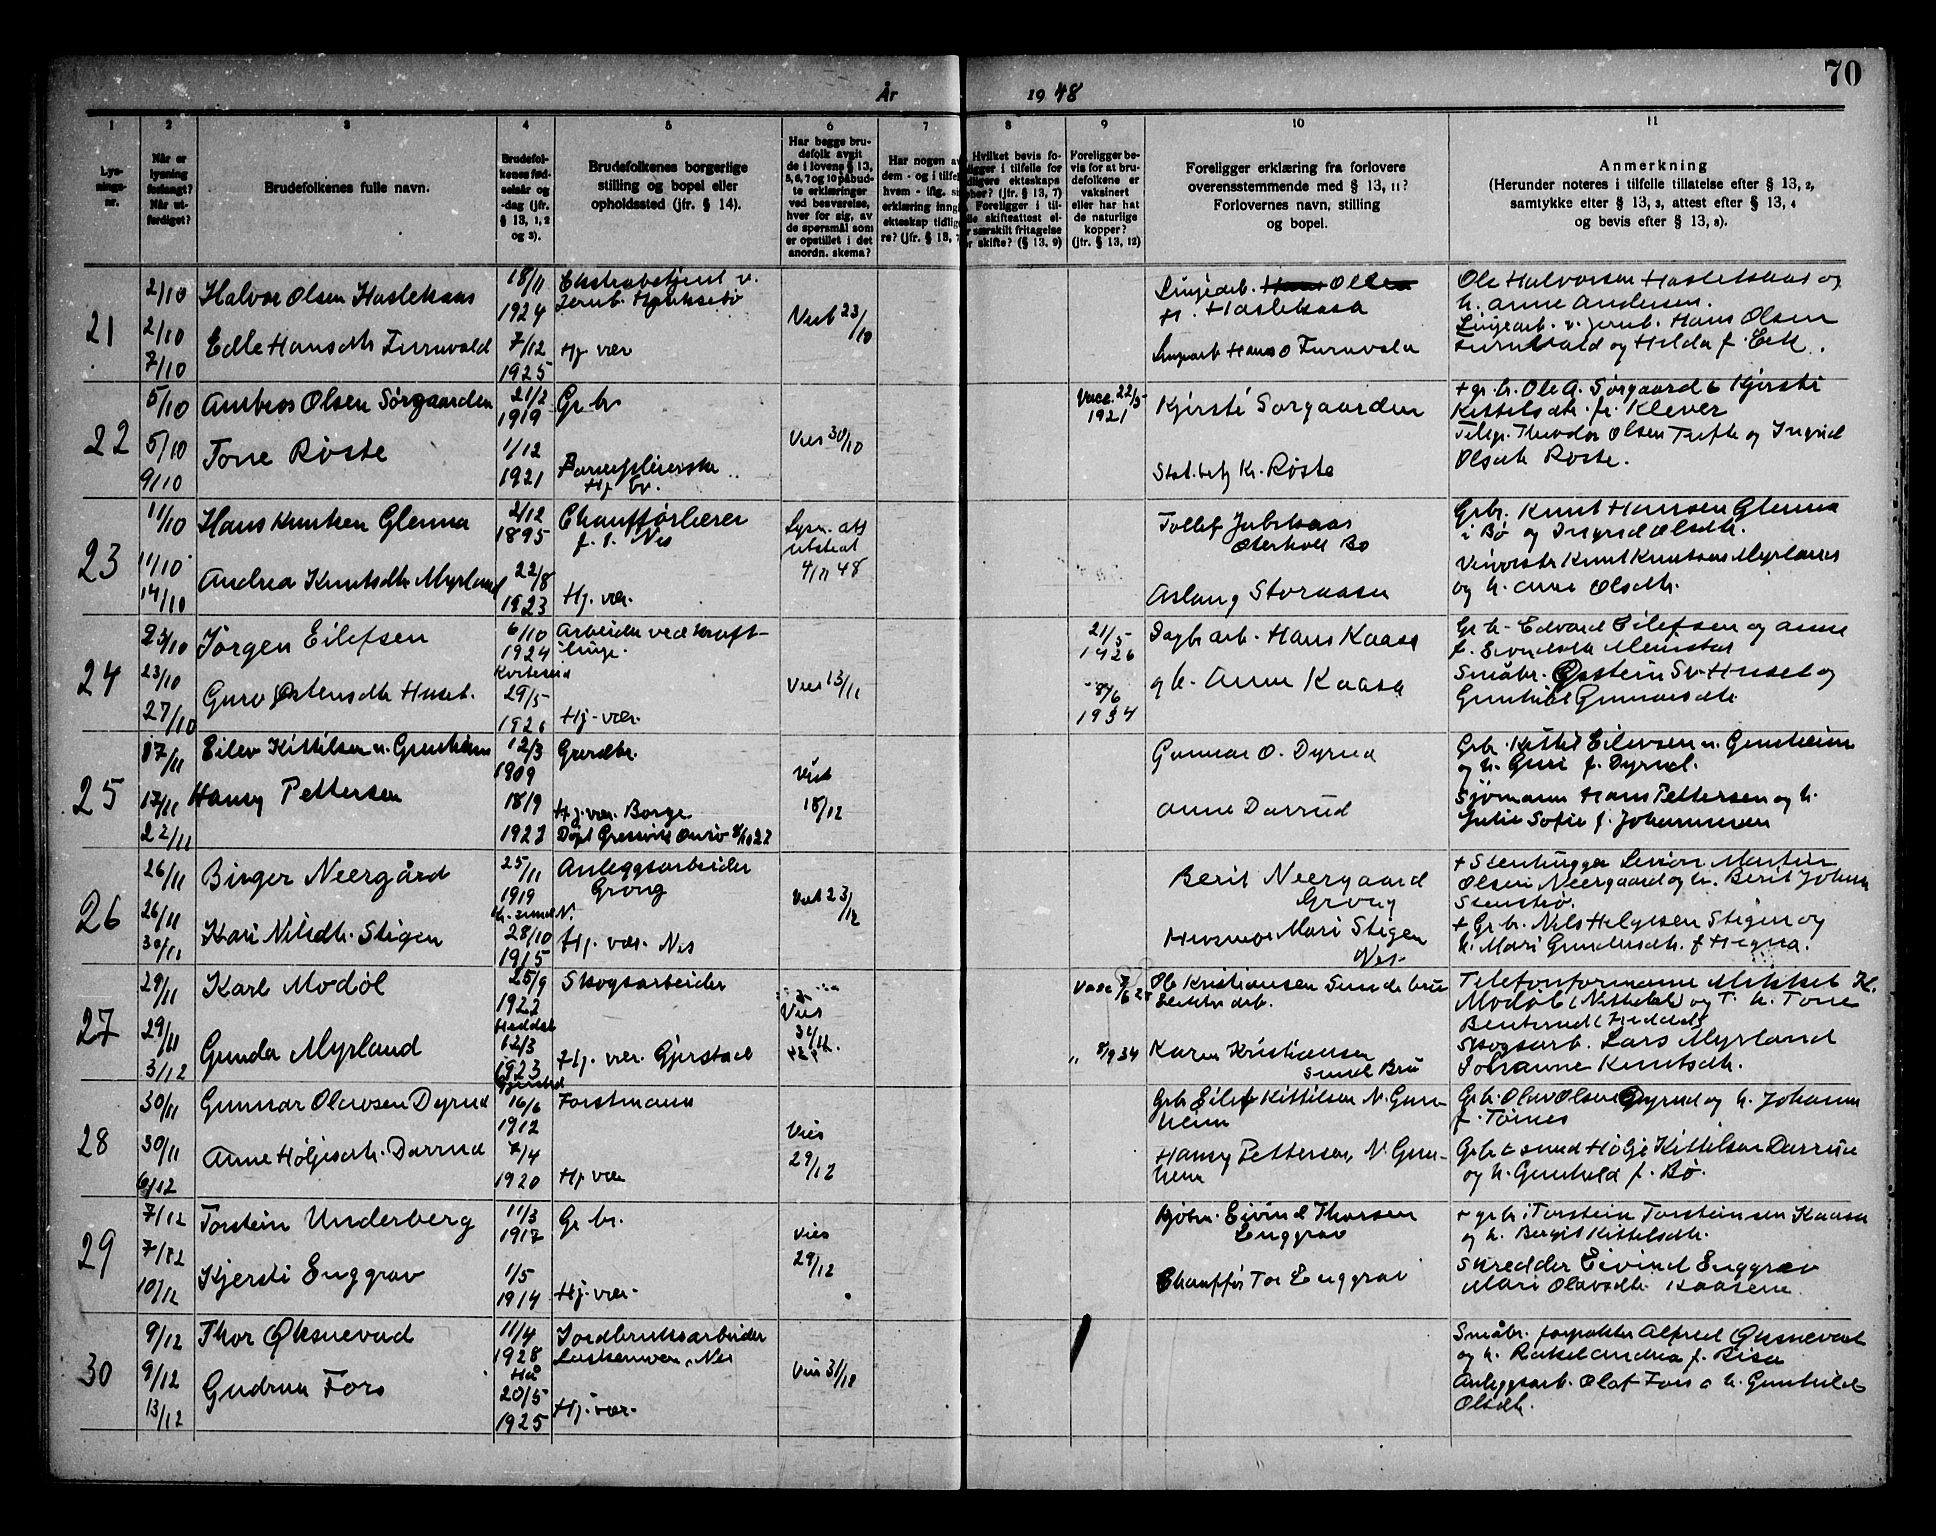 70
År 1948
1 2 3 4 5 6 7 8 9 10 11
Lysningsnr.
Når er lysning forlangt? Når utferdiget?
Brudefolkenes fulle navn.
Brudefolkenes fødselsår og -dag (jfr. § 13, 1, 2 og 3).
Brudefolkenes borgerlige stilling og bopel eller opholdssted (jfr. § 14).
Har begge brudefolk avgit de i lovens § 13, 5, 6, 7 og 10 påbudte erklæringer ved besvarelse, hver for sig, av de spørsmål som er opstillet i det anordn. skema?
Har nogen av dem - og i tilfelle hvem - iflg. erklæring inngått ekteskap tidligere? (jfr. § 13, 7
Hvilket bevis foreligger i tilfelle for tidligere ekteskaps (jfr. § 13, 7) Foreligger i tilfelle skifteattest el- særskilt fritagelse for skifte? (§ 13, 9)
Foreligger bevis for at brudefolkene er vaksinert eller har hat de naturlige kopper? (jfr. § 13, 12)
Foreligger erklæring fra forlovere overensstemmende med § 13, 11? Forlovernes navn, stilling og bopel.
Anmerkning (Herunder noteres i tilfelle tillatelse efter § 13, 2, samtykke efter § 13, 3, attest efter § 13, 4 og bevis efter § 13, 8).
21
2/10 Halvor Olsen Haslekaas 18/11 1924
2/10 7/10 Edle Hansdtr Furuvald 7/12 1925 Hj. vær
Viet 23/10
H. Haslekaas
Linjearb Hans O Furuvald
Ole Halvorsen Haslekaas og
h. Anne Andersen.
Linjearb. v. Jernb. Hans Olsen
Furuvald og Hilda f. Eek.
22
5/10 Ambros Olsen Sørgaarden 21/2 1919 Gr.br
5/10 9/10 Tone Røste 1/12 1921
Vies 30/10
Vacc. 22/5 1921
Kjersti Sørgaarden
K. Røste
+ gr. br. Ole A. Sørgaard & Kjersti
Kittelsdtr. f. Klever
Theodor Olsen Tufte og Ingrid
Olsdtr Røste.
23
11/10 Hans Knutsen Glenna 2/12 1895 Chaufførlærer
f. t. Nes
11/10 14/10 Andrea Knutsdtr Myrland 22/8 1923 Hj. vær.
Lysn. att utstedt 4/11 48
Tollef Jubskaas
Østerholt Bø
Aslaug Storaasen
Grbr. Knut Hansen Glenna
i Bø og Ingrid Olsdtr.
Knut Knutsen Myrland
og h. Anne Olsdtr.
24
23/10 Jørgen Eilefsen 6/10 1924 Kviteseid Arbeider ved kraft-
linje.
23/10 27/10 Guro Østensdtr Huset. 29/5 1926 Hj. vær.
Vies 13/11
21/5 1926
8/6 1934
Dagbr arb. Hans Kaasa
g h. Anne Kaasa
Gr. br. Edvard Eilefsen og Anne
f. Sivertsdtr Meinstad
Småbr. Øystein Sv. Huset og
Gunhild Gunnarsdtr.
25
17/11 Eilev Kittilsen n. Gunheim 12/3 1909 Grdbr.
17/11 22/11 Hansy Pettersen 18/9 1922 Hj. vær. Borge
Døpt Gressvik Onsø 8/10 22
Viet 18/12
Gunnar O. Dyrud
Anne Darrud
Grbr. Kittil Eilevsen n. Gunheim
og h. Guri f. Dyrud.
Sjømann Hans Pettersen og h.
Julie Sofie f. Johannessen
26
26/11 Birger Neergård 25/11 1919 Kr. sund N. Anleggsarbeider
Grong
26/11 30/11 Kari Nilsdtr. Stigen 28/10 1915 Hj. vær. Nes
Viet 23/12
Berit Neergaard
Grong
Husmor Mari Stigen
Nes
+ Stenhugger Simon Martin
Olsen Neergaard og h. Berit Johanne
+ Gr. br. Nils Helgesen Stigen og
h. Mari Gundersdtr. f Hegna.
27
29/11 Karl Modøl 25/9 1922 Heddal Skogsarbeider
29/11 3/12 Gunda Myrland 12/3 1923 Gjerstad Hj. vær. Gjerstad
Vies 31/12
Vacc 7/6 2
" 8/9 34
Ole Kristiansen Sundebru
Karen Kristiansen
Sundebru
Telefonformann Mikkel K.
Modøl (Nittedal) og T. h. Tone
Benterud (Heddal)
Skogsarb. Lars Myrland
Johanne Knutsdtr.
28
30/11 Gunnar Olavsen Dyrud 16/6 1912 Forstmann
30/11 6/12 Anne Høljesdtr. Darrud 7/4 1920 Hj. vær
Vies 29/12
Grbr Eilef Kittilsen N. Gun-
heim
Hansy Pettersen, N. Gun-
heim
Grbr. Olav Olsen Dyrud og h. Johanne
f. Tørnes
Grbr & smed Høljé Kittilsen Darrud
og h. Gunhild f. Bø.
29
7/12 Torstein Underberg 11/3 1917 Gr br.
7/12 10/12 Kjersti Enggrav 1/5 1914 Hj. vær.
Vies 29/12
Eivind Thorsen
Enggrav
Chauffør Tor Enggrav
+ gr br. Torstein Torsteinsen Kaasa
og h. Bergit Kittelsdtr.
Skredder Eivind Enggrav
Mari Olavsdtr. Kaasene.
30
9/12 Thor Øksnevad 11/4 1928 Hå Jordbruksarbeider
9/12 13/12 Gudrun Fors 20/5 1925 Hj. vær.
Småbr. forpakter Alfred Øksnevad
og h. Rakel Andrea f. Risa
Anleggsarb. Olaf Fors o h. Gunhild
Olsdtr.